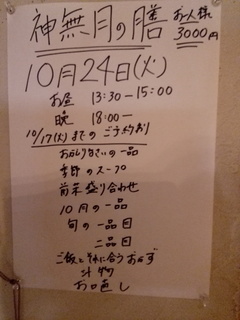 神無月の膳 お一人様 3000円
10月24日(火)
お昼 13:30-15:00
晩 18:00-
10/17(火)までのご予約制
お知らせいの一品
季節のスープ
前菜盛り合わせ
10月の一品
旬の一品目
二品目
ご飯とそれに合うおかず
汁物
お口直し